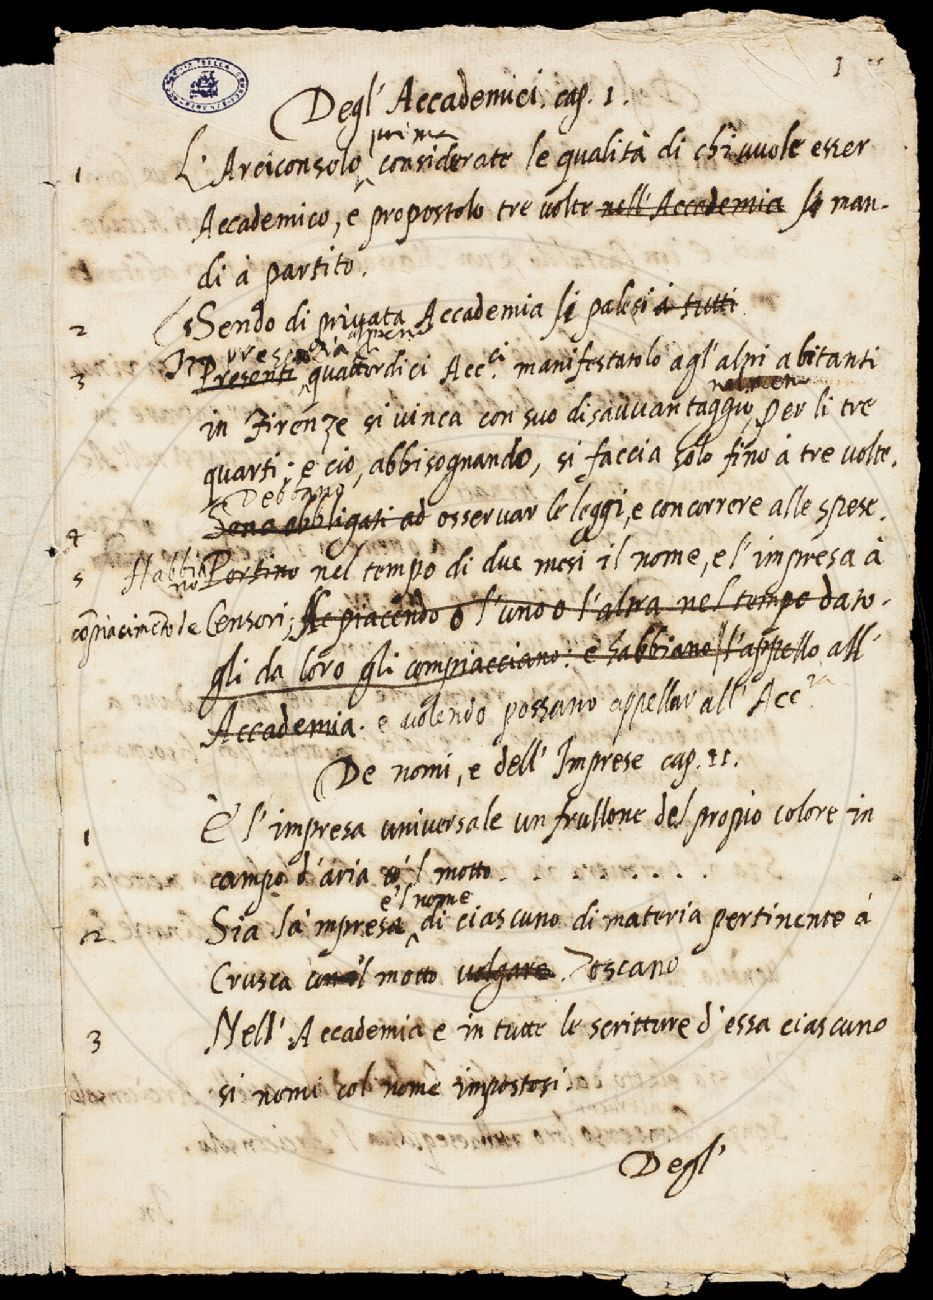 1
Degl' Accademici. cap. 1.
prima
1 L'Arciconsolo considerate le qualità di chi vuole esser
Accademico, e propostolo tre volte nell'Accademia si man-
di à partito.
2 Sendo di privata Accademia si palesi à tutti
In presenza almeno
3 Presenti quattordici Acc.ci manifestatolo agl'altri abitanti
in Firenze si vinca con suo disavvantaggio, per li tre
quarti; e cio, abbisognando, si faccia solo fino à tre volte.
Debbano
4 Sono obbligati ad osservar le leggi, e concorrere alle spese.
5 Habbiano Portino nel tempo di due mesi il nome, e l'impresa à
compiacimento de Censori; Ne piacendo o l'uno o l'altra nel tempo dato-
gli da loro gli compiacciano: e habbiano l'appello all'
Accademia. e volendo possano appellar all'Acc.
De nomi, e dell'Imprese cap. II.
1 È l'impresa universale un frullone del propio colore in
campo d'aria 'l motto . . . . . . .
e'l nome
2 Sia la impresa di ciascuno di materia pertinente á
Crusca con'l motto volgare. Toscano
3 Nell'Accademia e in tutte le scritture d'essa ciascuno
si nomi col nome impostosi.
Degl'